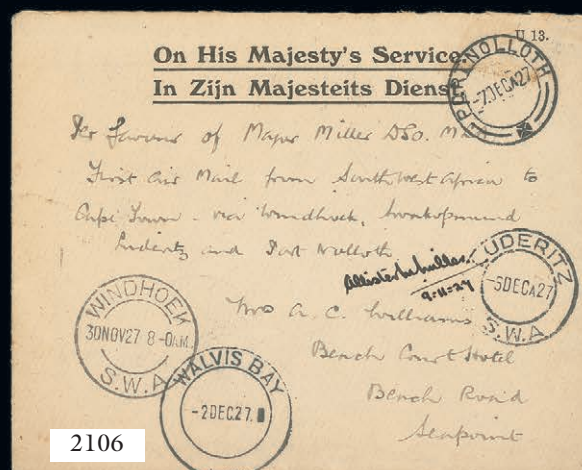 U 13.
On His Majesty's Service
In Zijn Majesteits Diens
PORT NOLLOTH
-7DECA27
Per favour of Major Miller DSO. M
First Air Mail from South West Africa to
Cape Town - via Windhoek, Swakopmund
Luderitz and Port Nolloth
Allister Miller
9-11-27
LUDERITZ
-5DECA27
S.W.A
WINDHOEK
30NOV27 8-0AM.
S.W.A
Mrs A. C. Williams
Beach Court Hotel
Beach Road
Seapoint
WALVIS BAY
-2DEC27.
2106